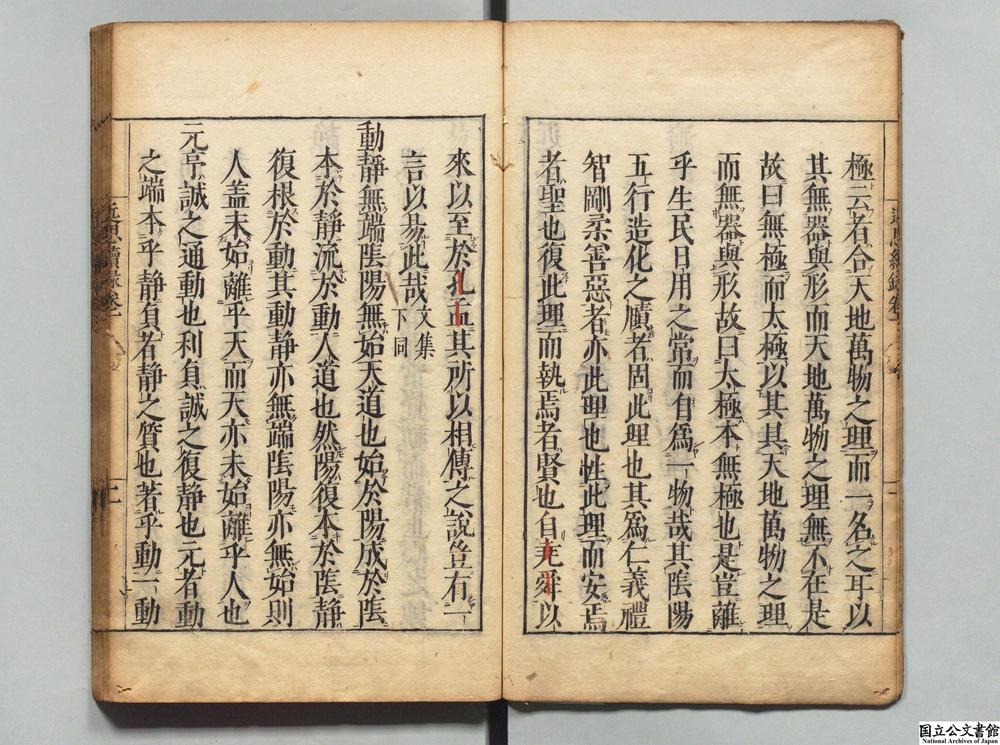 極云者合天地萬物之理而一名之耳以
其無器與形而天地萬物之理無不在是
故曰無極而太極以其具天地萬物之理
而無器與形故曰太極本無極也是豈離
乎生民日用之常而自爲一物哉其陰陽
五行造化之賾者固此理也其爲仁義禮
智剛柔善惡者亦此理也性此理而安焉
者聖也復此理而執焉者賢也自堯舜以
來以至於孔孟其所以相傳之說豈有一
言以易此哉文集下同
動靜無端陰陽無始天道也始於陽成於陰
本於靜流於動人道也然陽復本於陰靜
復根於動其動靜亦無端陰陽亦無始則
人蓋未始離乎天而天亦未始離乎人也
元亨誠之通動也利貞誠之復靜也元者動
之端本乎靜貞者靜之質也著乎動一動
近思續録卷一
国立公文書館
National Archives of Japan